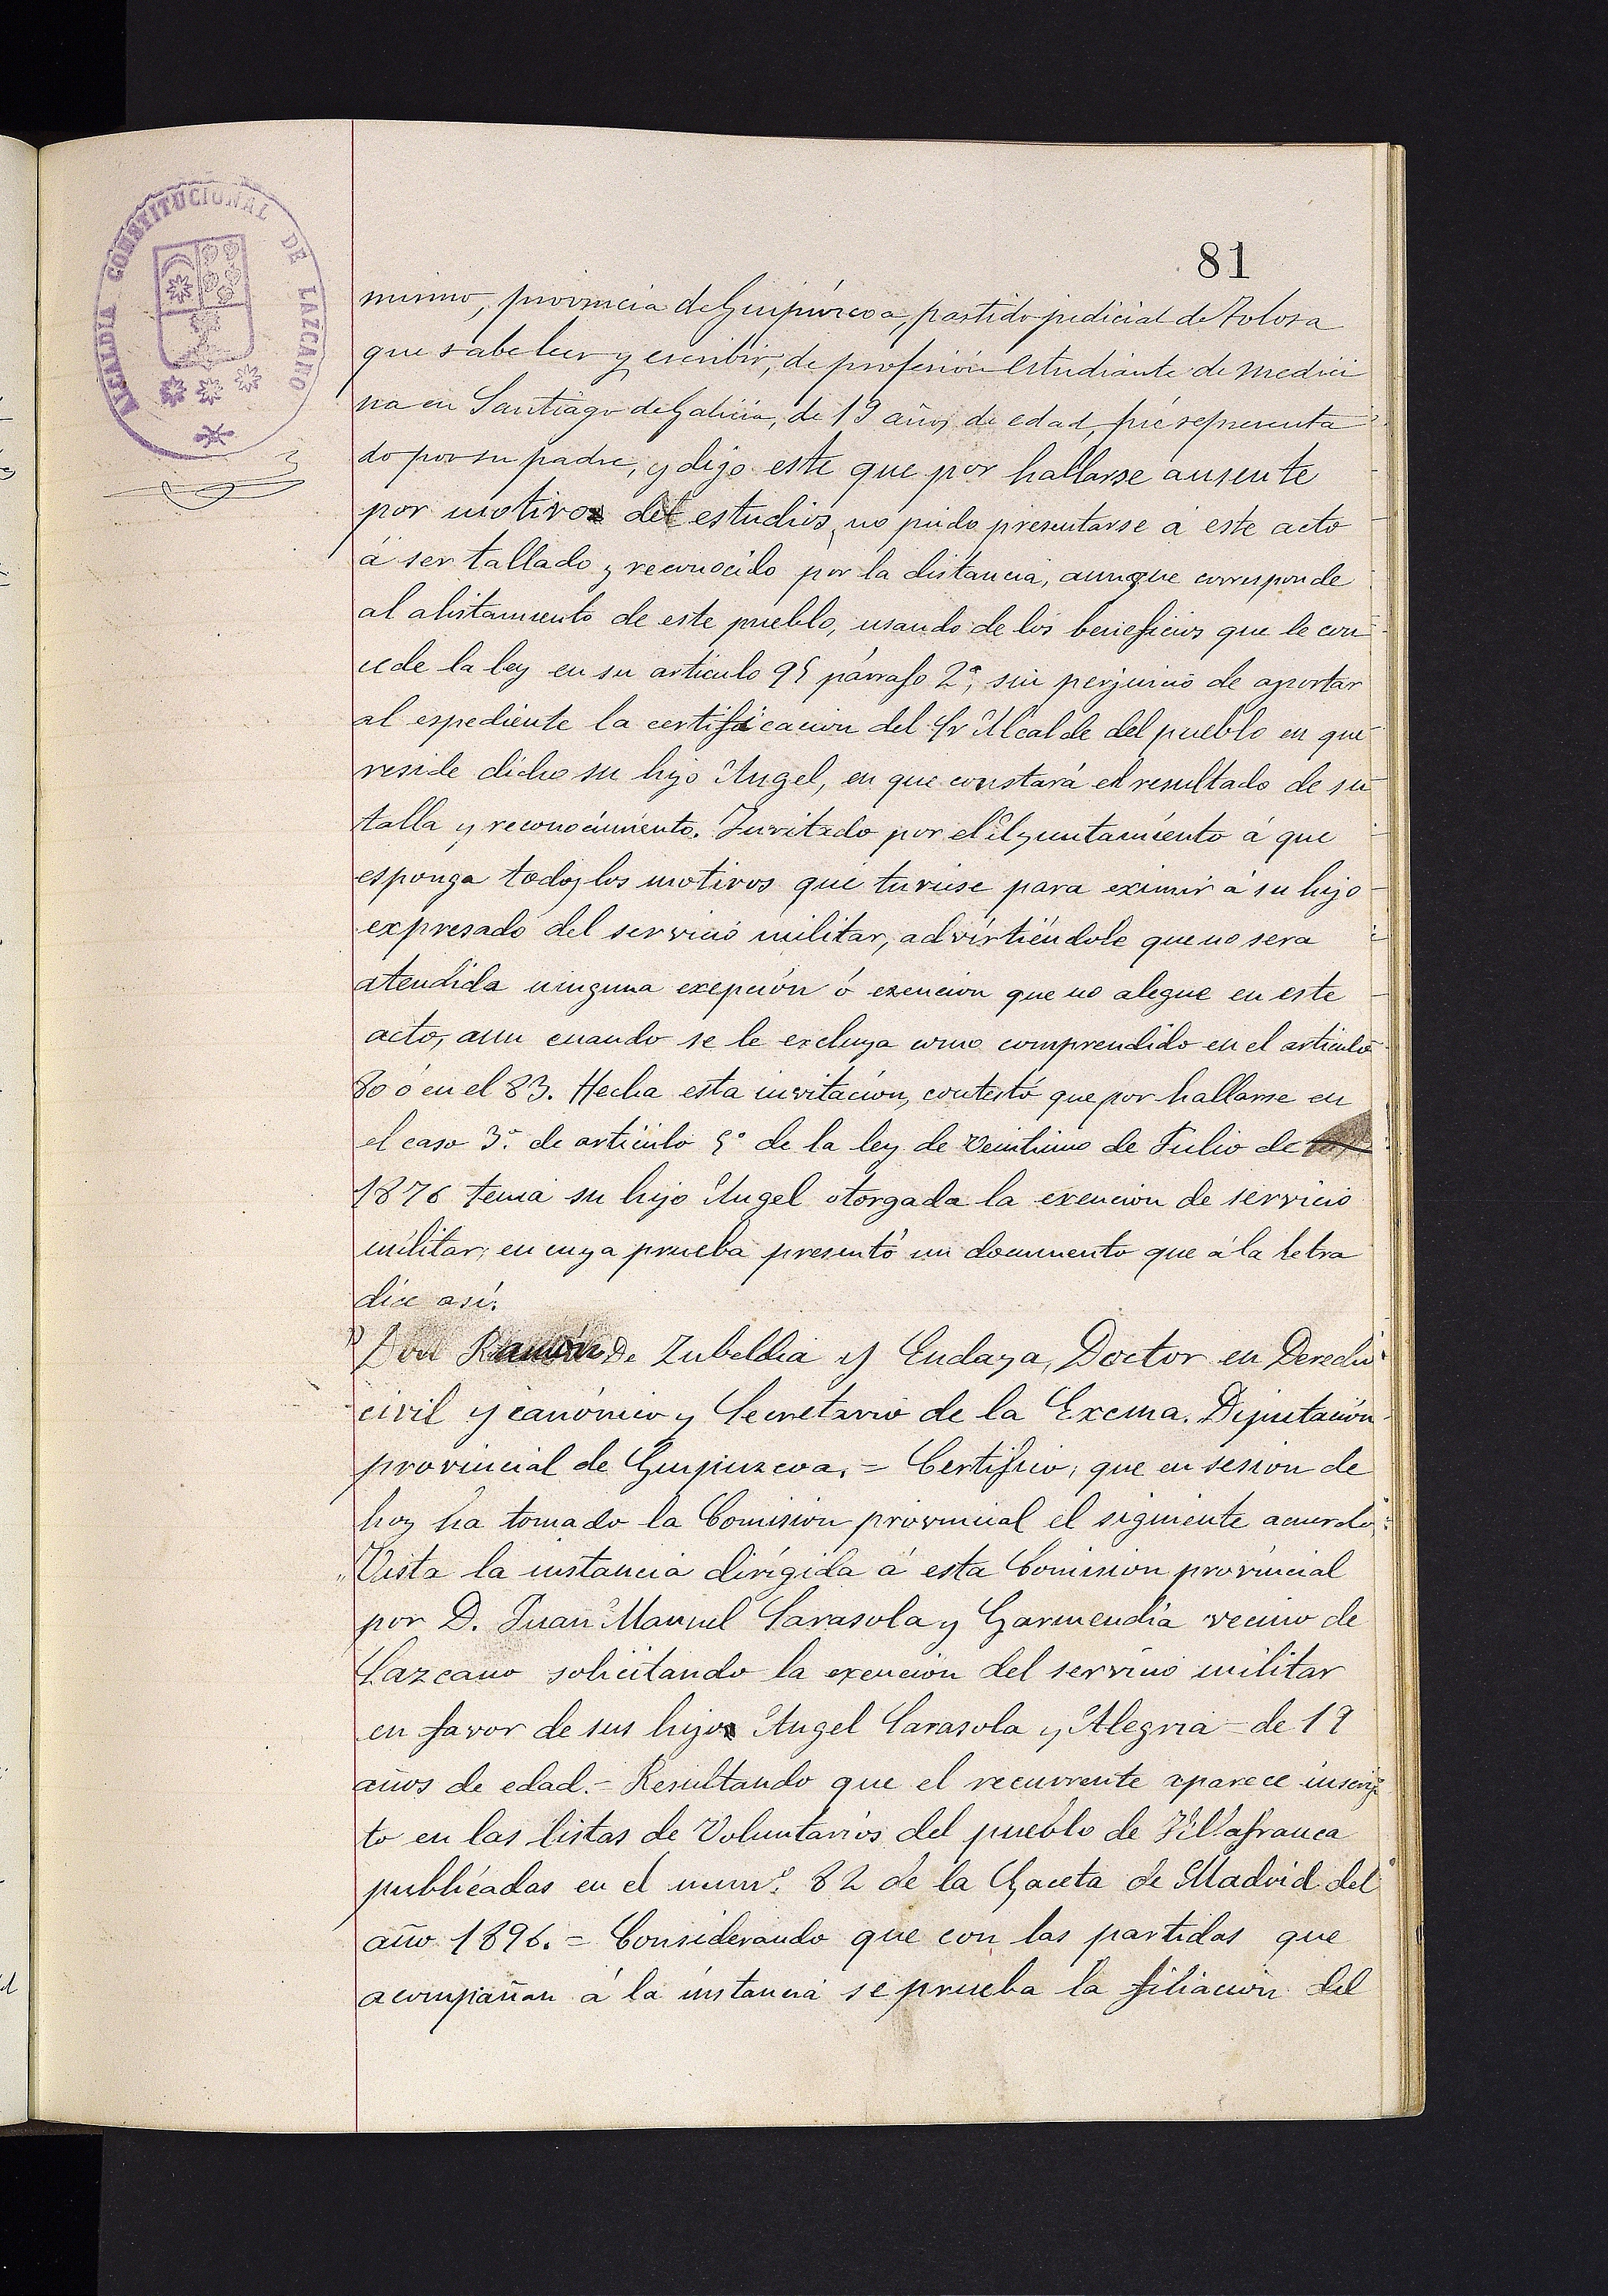 81
ALCALDIA CONSTITUCIONAL DE LAZCANO
mismo, provincia de Guipúzcoa, partido judicial de Tolosa
que sabe leer y escribir, de profesión estudiante de medici
na en Santiago de Galicia, de 19 años de edad, fué representa
do por su padre, y dijo este que por hallarse ausente
por motivos de estudios, no pudo presentarse á este acto
á ser tallado y reconocido por la distancia, aunque corresponde
al alistamiento de este pueblo, usando de los beneficios que le con
cede la ley en su articulo 95 párrafo 2º, sin perjuicio de aportar
al espediente la certificacion del Sr Alcalde del pueblo en que
reside dicho su hijo Angel, en que constará el resultado de su
talla y reconocimiento. Invitado por el Ayuntamiento á que
esponga todos los motivos que tuviese para eximir á su hijo
expresado del servicio militar, advirtiéndole que no sera
atendida ninguna exepción ó exencion que no alegue en este
acto, aun cuando se le excluya como comprendido en el articulo
80 ó en el 83. Hecha esta invitación, contestó que por hallarse en
el caso 3º de articulo 5º de la ley de veintiuno de Julio de
1876 tenia su hijo Angel otorgada la exencion de servicio
militar; en cuya prueba presentó un documento que á la letra
dice así:
"Don Ramón de Zubeldia y Eudaya, Doctor en Derecho
civil y canónico y Secretario de la Excma. Diputación
provincial de Guipuzcoa. = Certifico; que en sesion de
hoy ha tomado la Comision provincial el siguiente acuerdo:
"Vista la instancia dirigida á esta Comision provincial
por D. Juan Manuel Sarasola y Garmendia vecino de
Lazcano solicitando la exención del servicio militar
en favor de sus hijo Angel Sarasola y Alegria - de 19
años de edad. = Resultando que el recurrente aparece inscrip
to en las listas de Voluntarios del pueblo de Villafranca
publicadas en el numº. 82 de la Gaceta de Madrid del
año 1896. = Considerando que con las partidas que
acompañan á la instancia se prueba la filiacion del